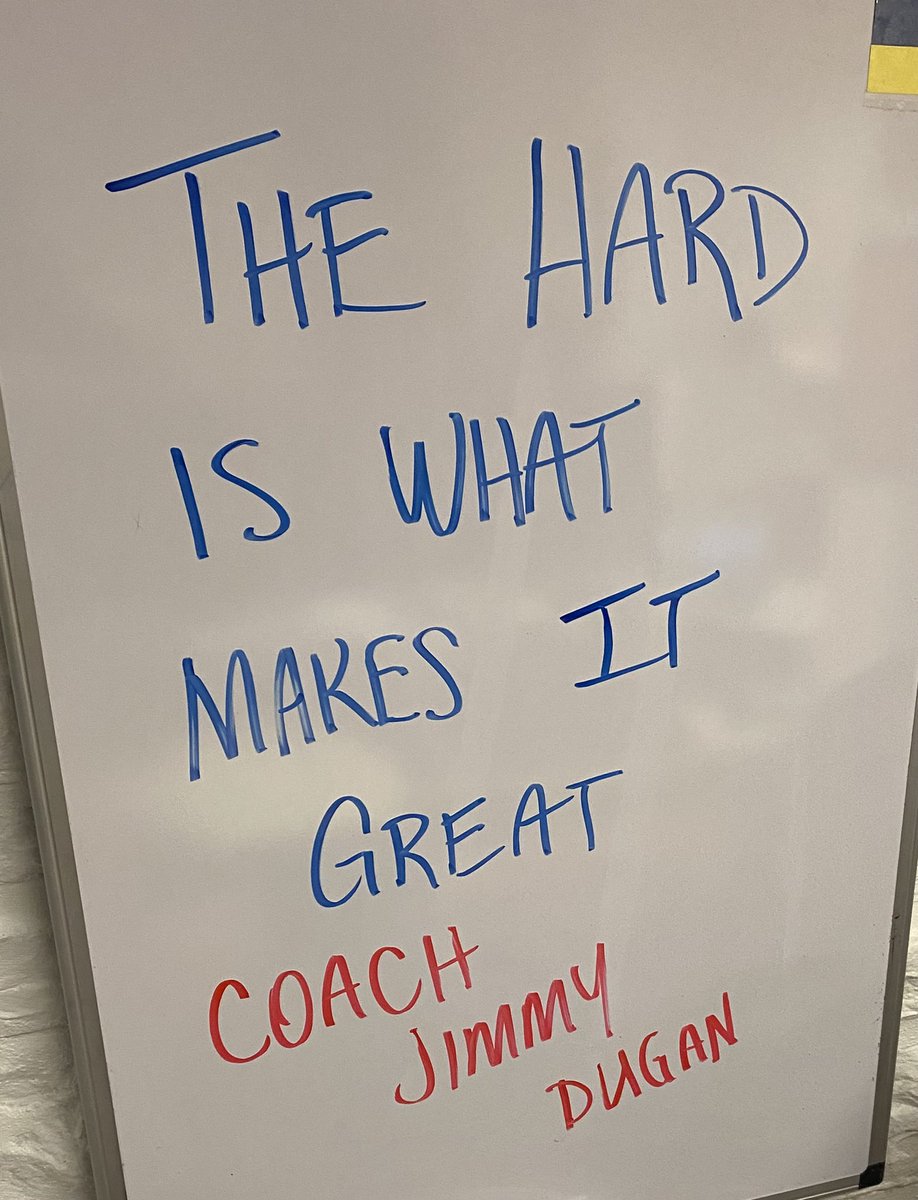 THE HARD
IS WHAT
MAKES IT
GREAT
COACH
JIMMY
DUGAN